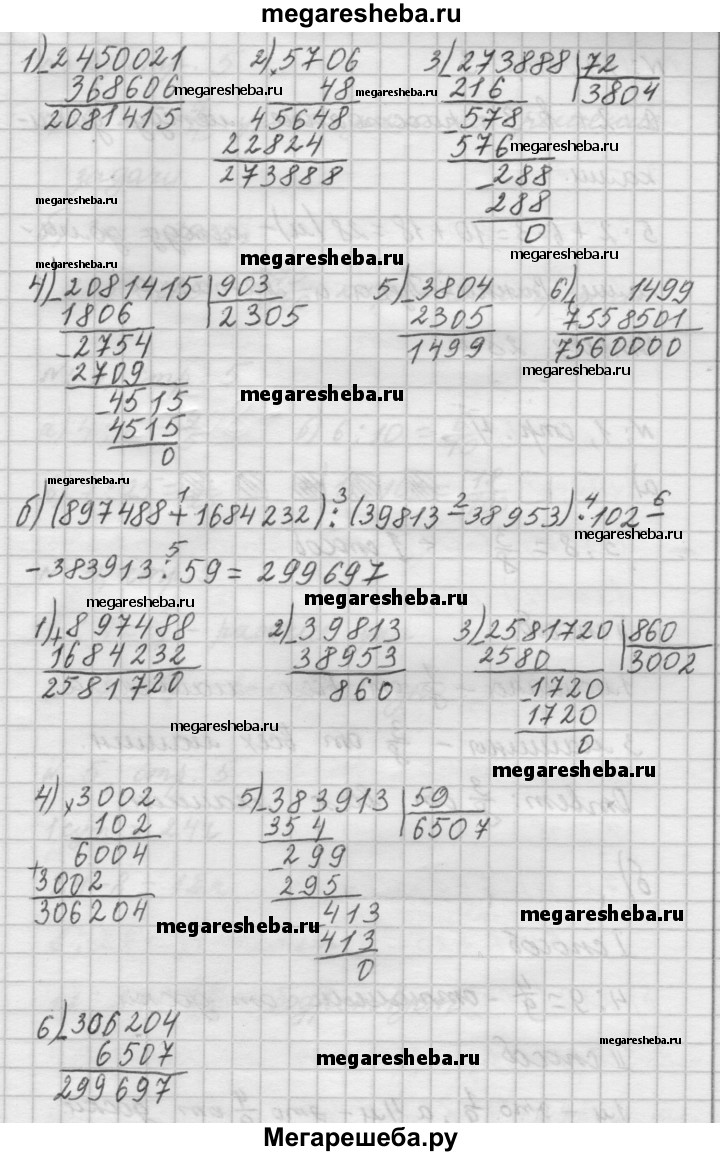 megaresheba.ru
1) 2450021 2) 5706 3) 273888 | 72
- 368606 × 48 - 216 3804
2081415 45648 - 578
22824 576
273888 - 288
288
0
megaresheba.ru
megaresheba.ru
megaresheba.ru
megaresheba.ru
megaresheba.ru
megaresheba.ru
4) - 2081415 | 903 5) - 3804 6) + 1499
1806 2305 2305 7558501
- 2754 1499 7560000
2709
- 4515
4515
0
megaresheba.ru
megaresheba.ru
megaresheba.ru
megaresheba.ru
б) (897488 + 1684232) : (39813 - 38953) · 102 -
1 3 2 4 6
- 383913 : 59 = 299697
5
megaresheba.ru
megaresheba.ru
megaresheba.ru
1) + 897488 2) - 39813 3) - 2581720 | 860
1684232 38953 2580 3002
2581720 860 - 1720
1720
0
megaresheba.ru
megaresheba.ru
4) × 3002 5) - 383913 | 59
102 354 6507
6004 - 299
+ 3002 295
306204 - 413
413
0
megaresheba.ru
megaresheba.ru
6) - 306204
6507
299697
megaresheba.ru
megaresheba.ru
Мегарешеба.ру